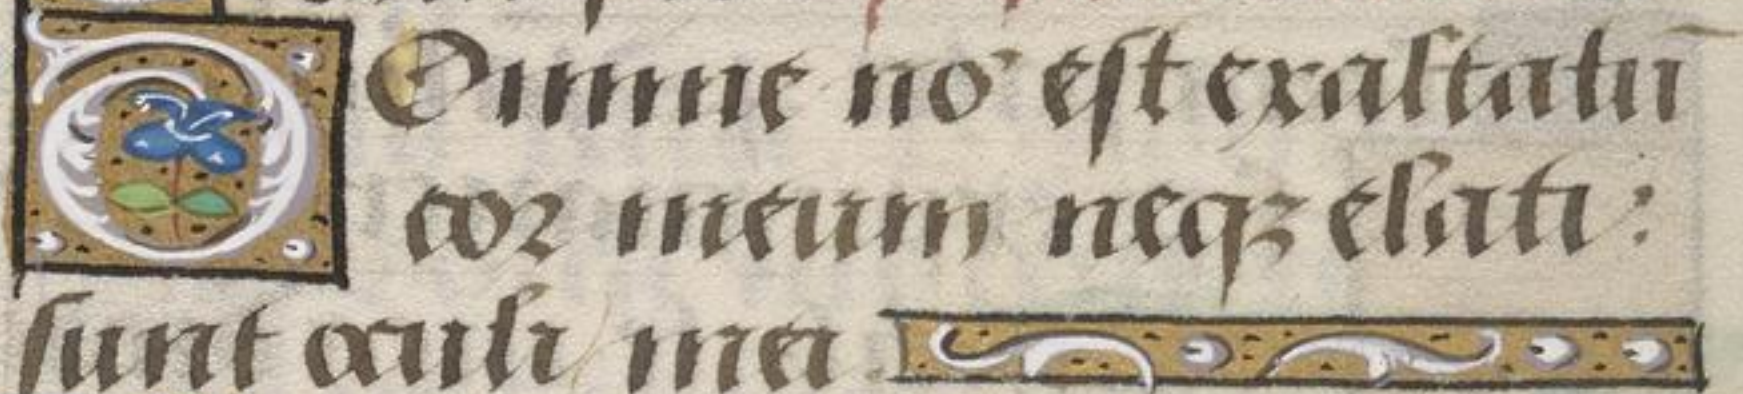 Domine nō est exaltatū
cor meum neqꝫ elati :
sunt oculi mei